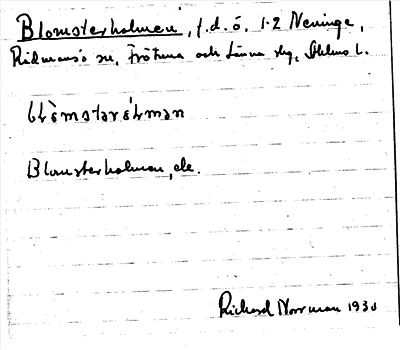 Blomsterholmen, f.d. ö, 1-2 Neninge,
Rådmansö sn, Frötuna och Länna skg, Sthlms l.
Blomsterholmen, ele.
Richard Norrman 1930